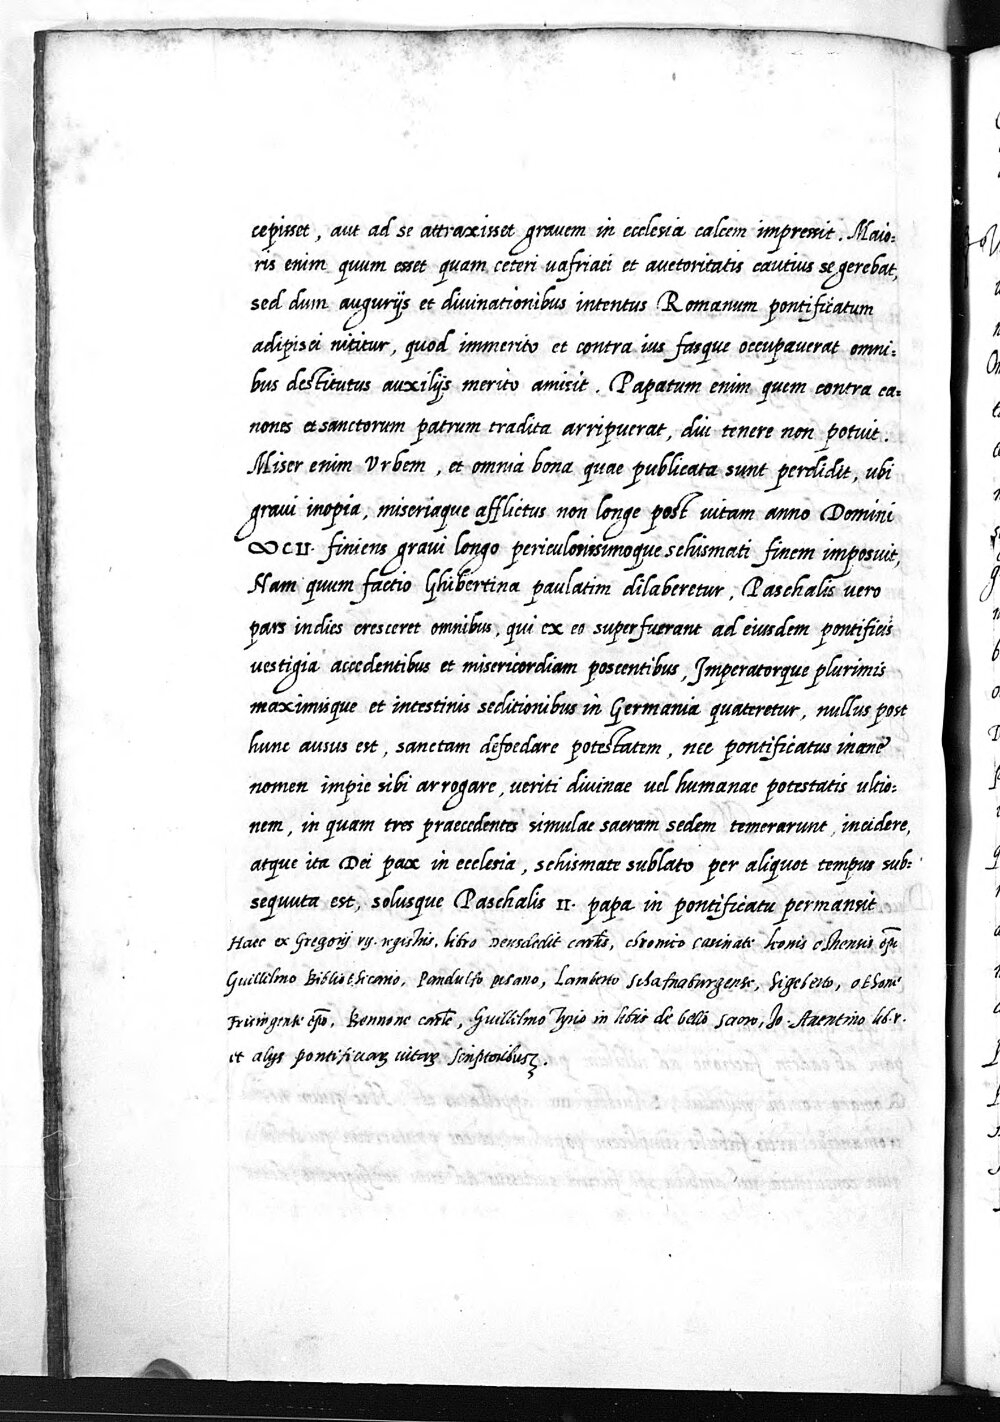 cepisset, aut ad se attraxisset grauem in ecclesia calcem impressit. Maio:
ris enim quum esset quam ceteri uafriaei et auctoritatis cautius se gerebat,
sed dum augurijs et diuinationibus intentus Romanum pontificatum
adipisci nititur, quod immerito et contra ius fasque occupauerat omni:
bus destitutus auxilijs merito amisit. Papatum enim quem contra ca:
nones et sanctorum patrum tradita arripuerat, diu tenere non potuit.
Miser enim Vrbem, et omnia bona quae publicata sunt perdidit, ubi
graui inopia, miseriaque afflictus non longe post uitam anno Domini
ↀCII. finiens graui longo periculosissimoque schismati finem imposuit,
Nam quum factio Ghibertina paulatim dilaberetur, Paschalis uero
pars indies cresceret omnibus, qui ex eo superfuerant ad eiusdem pontificis
uestigia accedentibus et misericordiam poscentibus, Imperatorque plurimis
maximisque et intestinis seditionibus in Germania quateretur, nullus post
hunc ausus est, sanctam defoedare potestatem, nec pontificatus inane
nomen impie sibi arrogare, ueriti diuinae uel humanae potestatis ultio:
nem, in quam tres praecedentes simulae sacram sedem temerarunt, incidere,
atque ita Dei pax in ecclesia, schismate sublato per aliquot tempus sub:
sequuta est, solusque Paschalis II. papa in pontificatu permansit
Haec ex Gregorij vij. registris, libro Deusdedit cardlis, chronico casinate leonis osthensis epi
Guillelmo Bibliothecario, Pandulfo pisano, Lamberto Schafnaburgense, Sigeberto, othone
Frisingense epo, Bennone carle, Guillelmo Tyrio in libris de bello sacro, Jo. Auentino lib. v.
et alijs pontificiarum uitarum scriptoribusq.